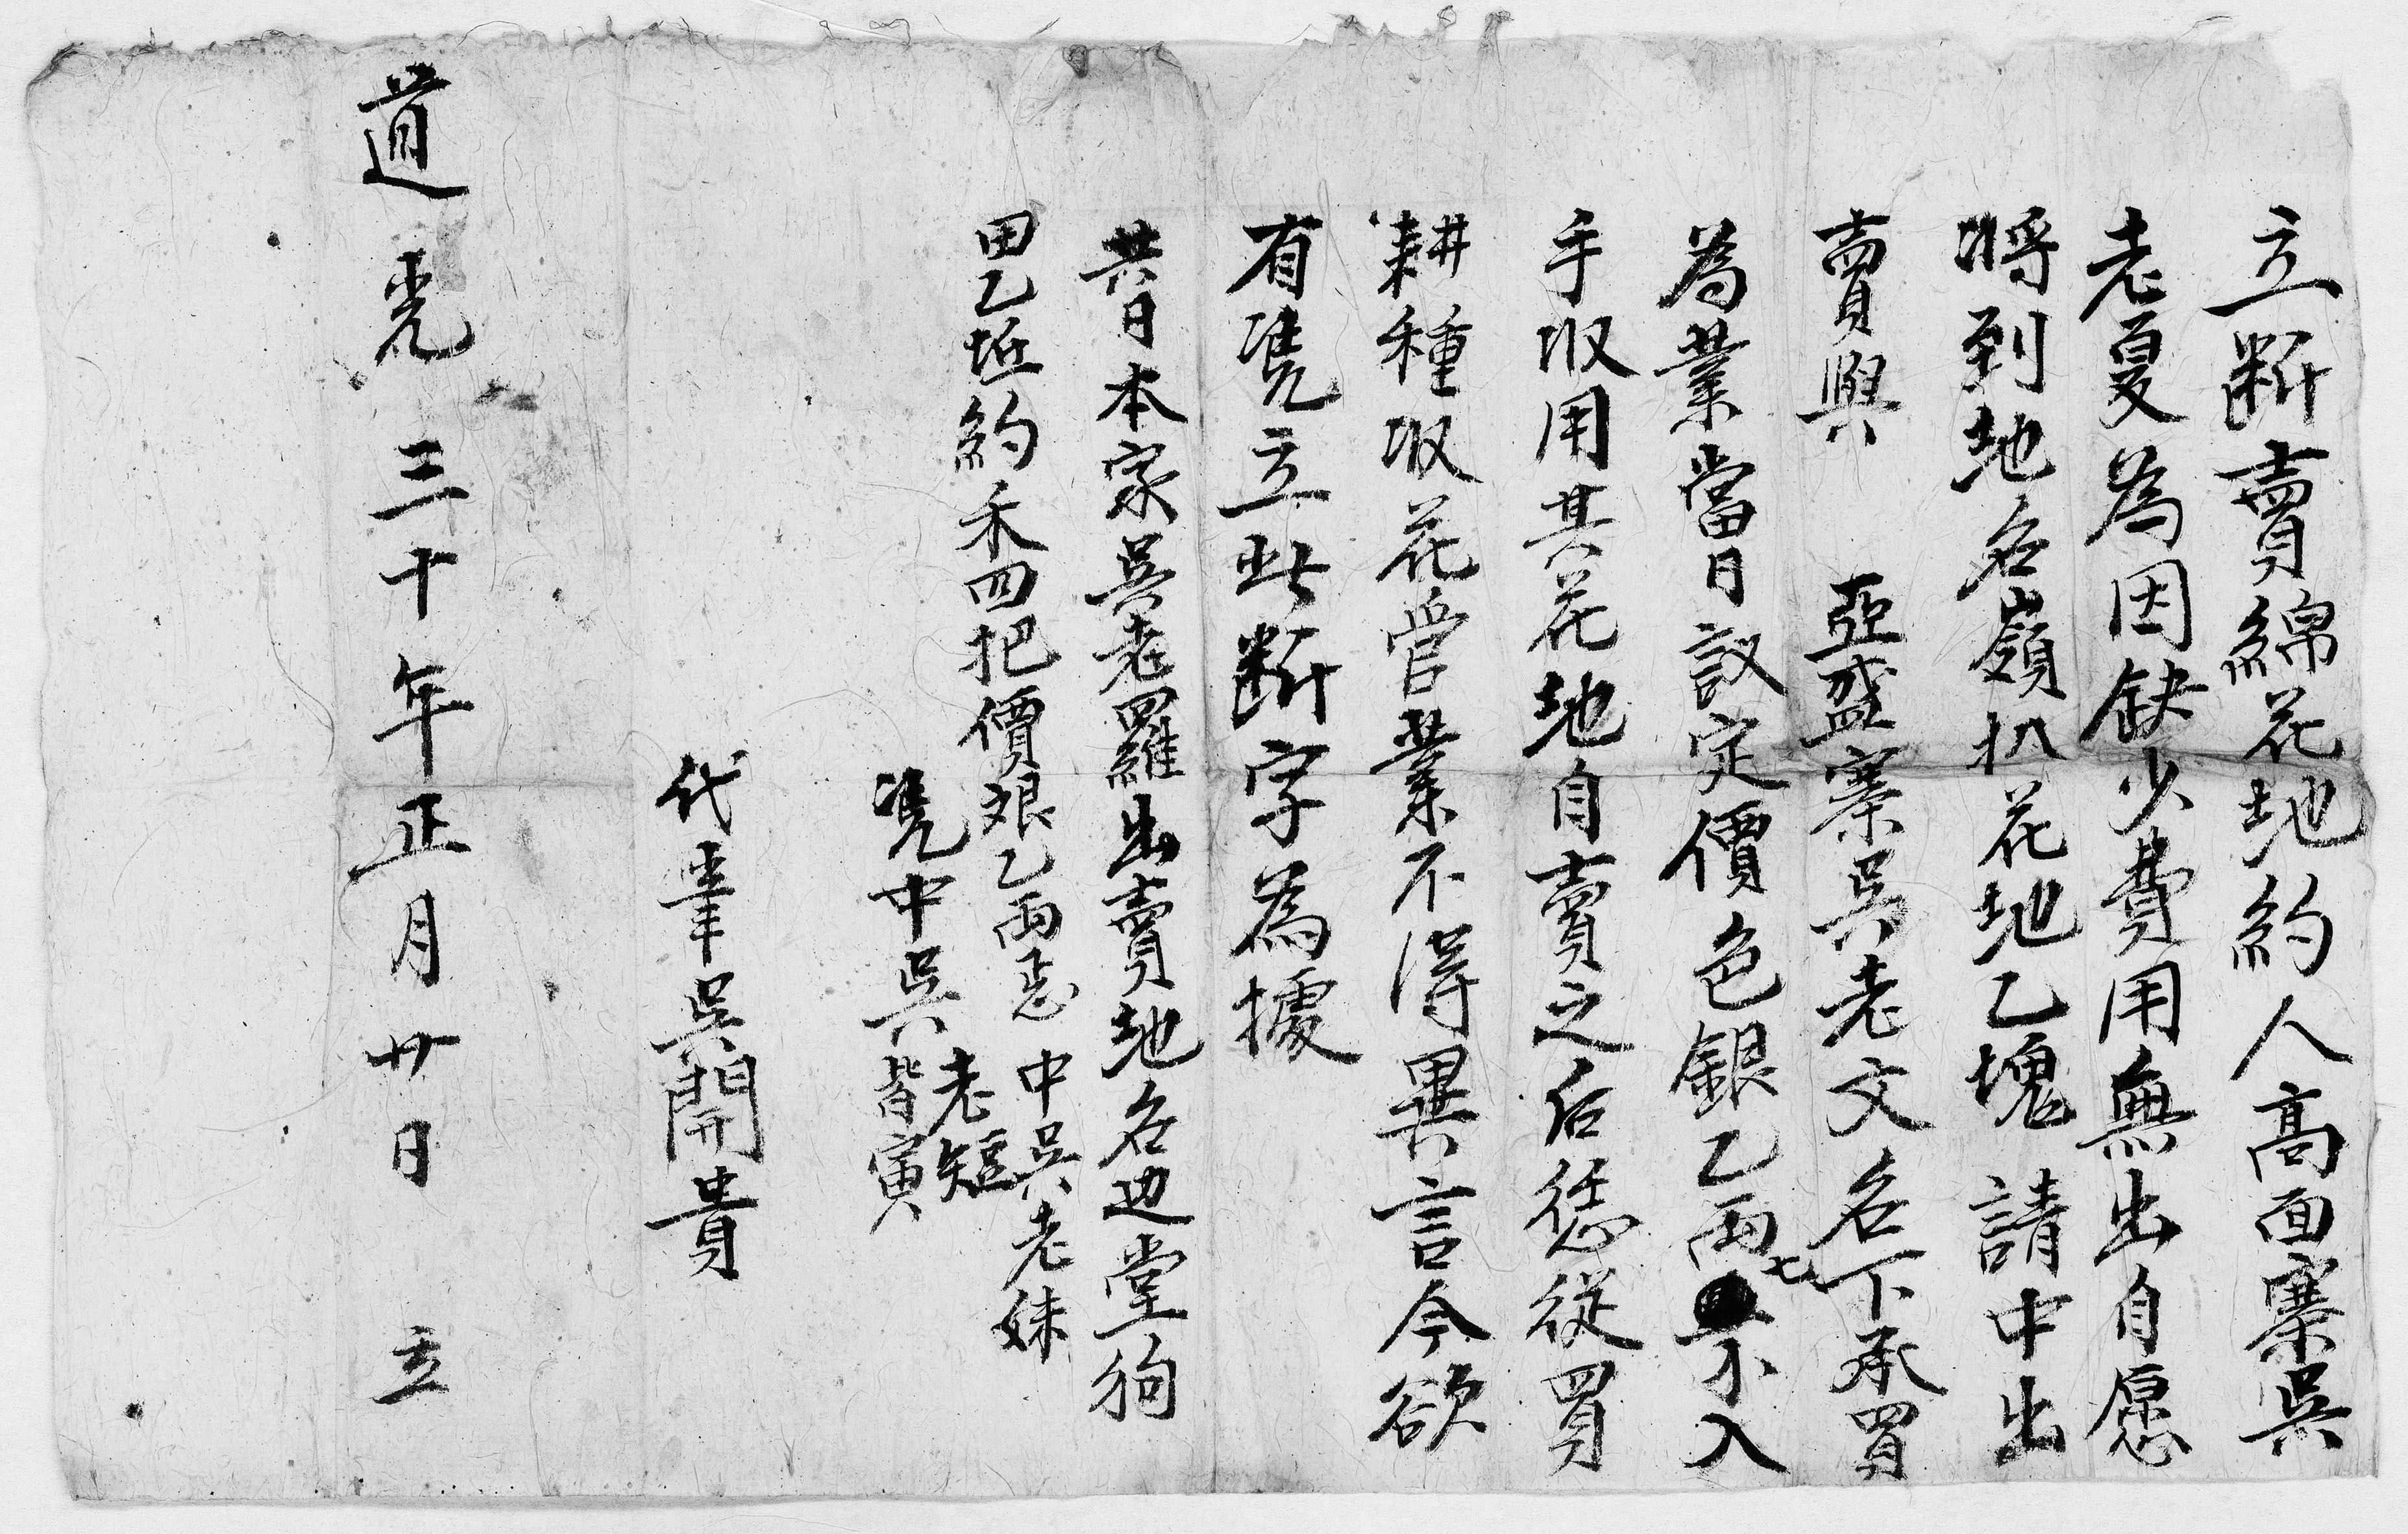 立断賣綿花地約人高面寨吳
老夏為因缺少費用無出自愿
将到地名嶺扒花地乙塊請中出
賣與 亞盛寨吳老文名下承買
為業當日議定價色銀乙兩七 入
手収用其花地自賣之后恁從買
耕種収花管業不得異言今欲
有凴立此断字為據
昔日本家吳老羅出賣地名边堂狗
田乙坵約禾四把價艮乙兩 中吳老妹
凴中吳老短
皆寅
代筆吳開貴
道光三十年正月廿日 立